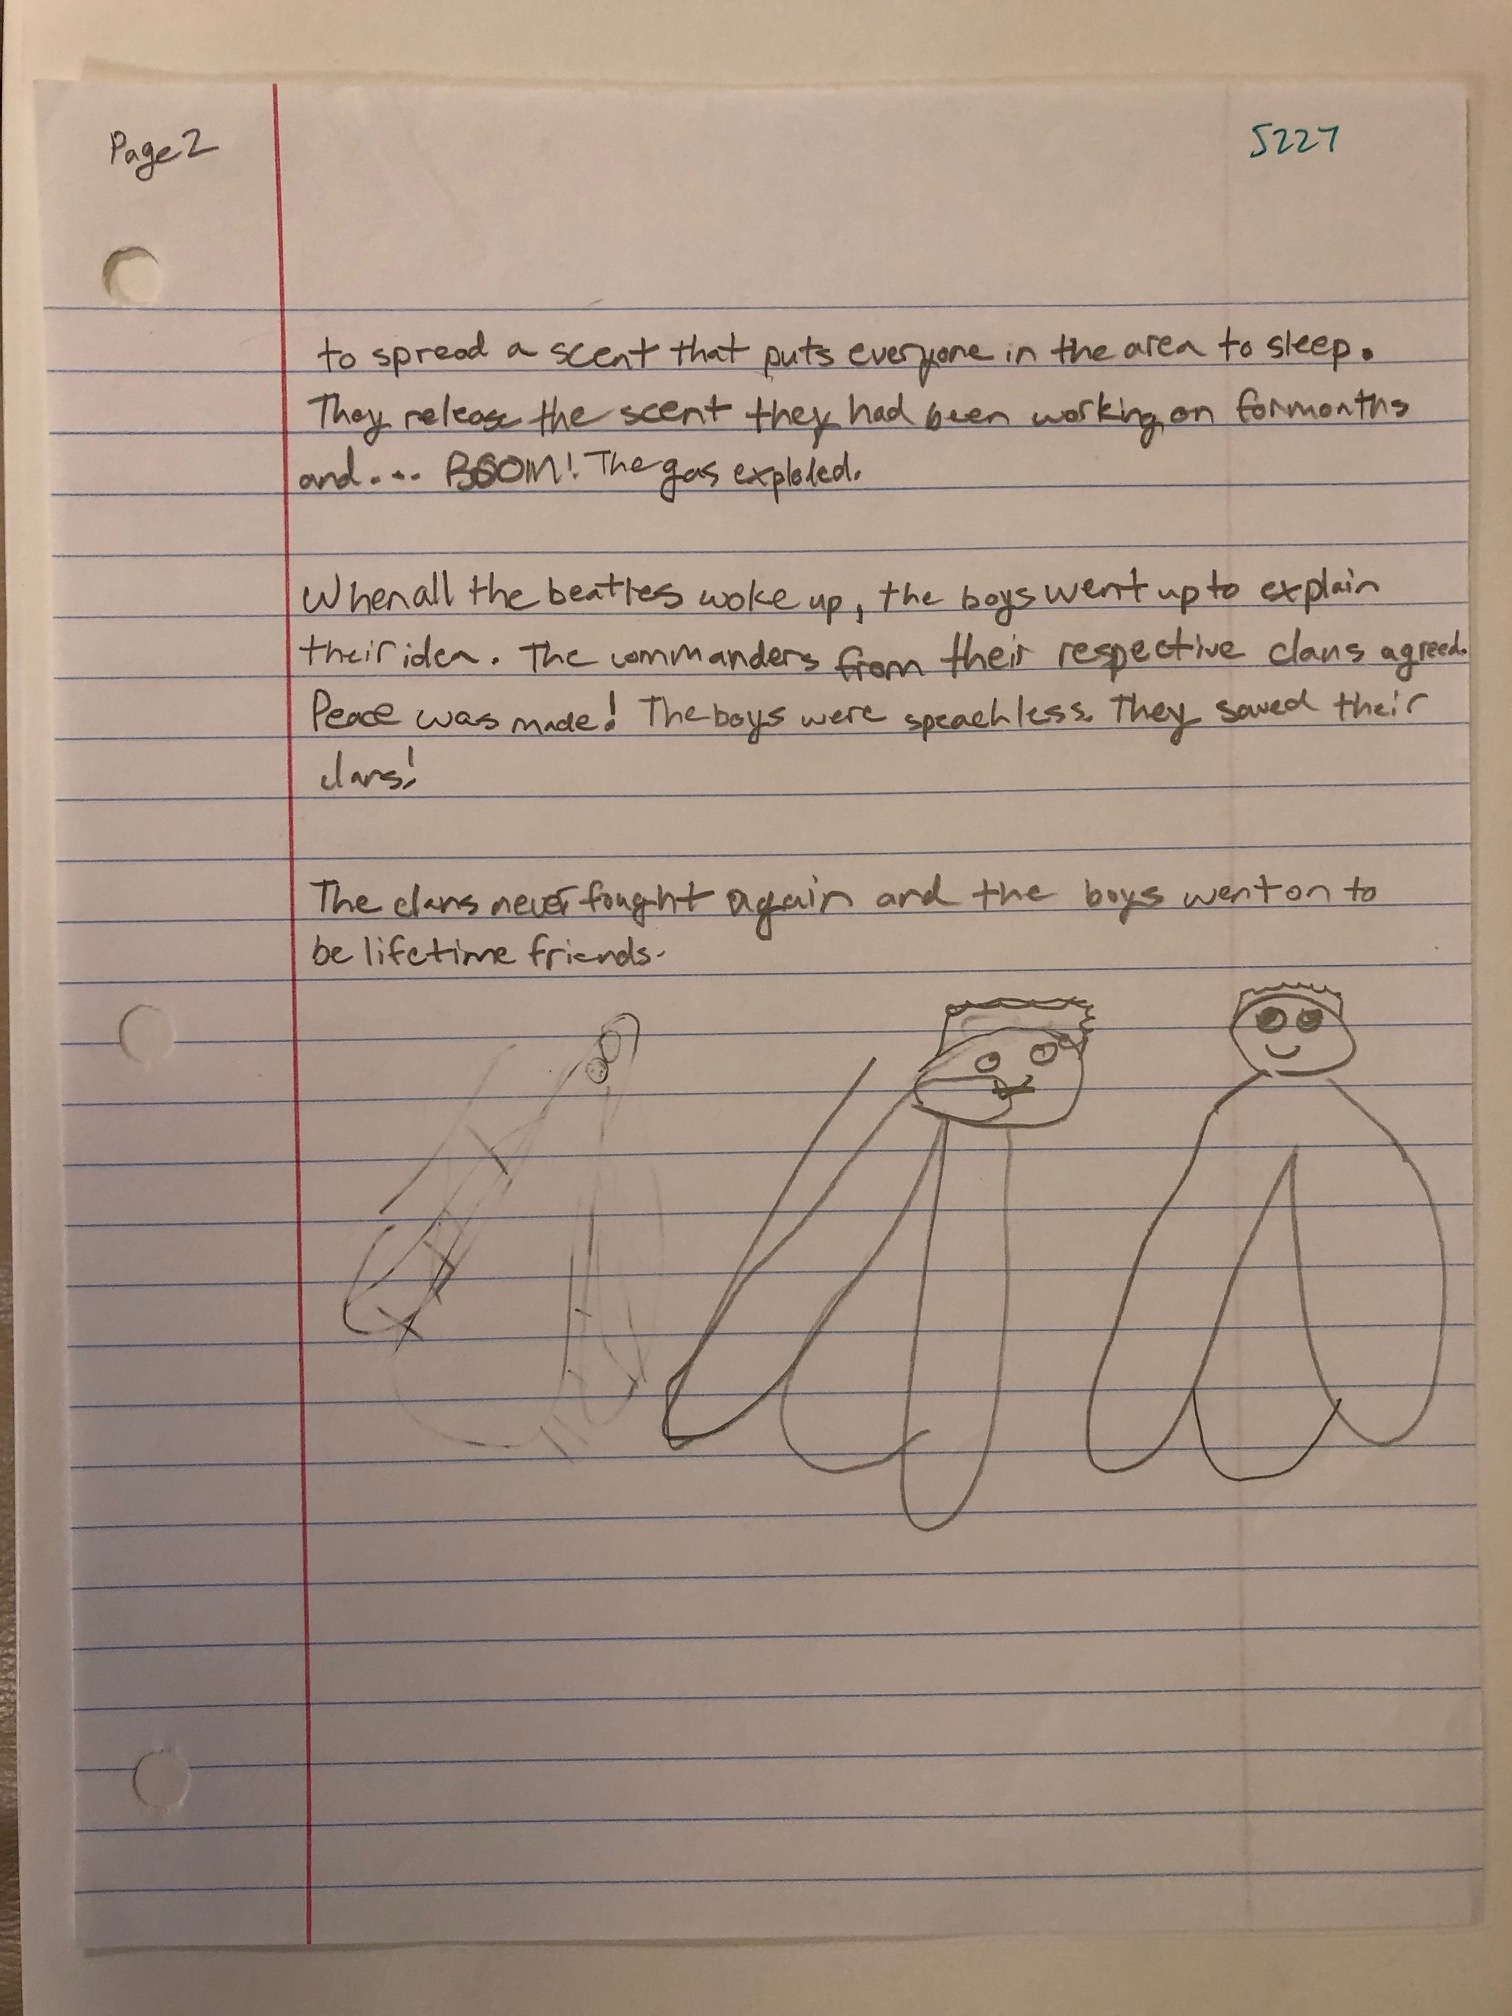 Page 2
5227
to spread a scent that puts everyone in the area to sleep.
They release the scent they had been working on for months
and.... BOOM! The gas exploded.
When all the beatles woke up, the boys went up to explain
their idea. The commanders from their respective clans agreed.
Peace was made! The boys were speachless. They saved their
clans!
The clans never fought again and the boys went on to
be lifetime friends.